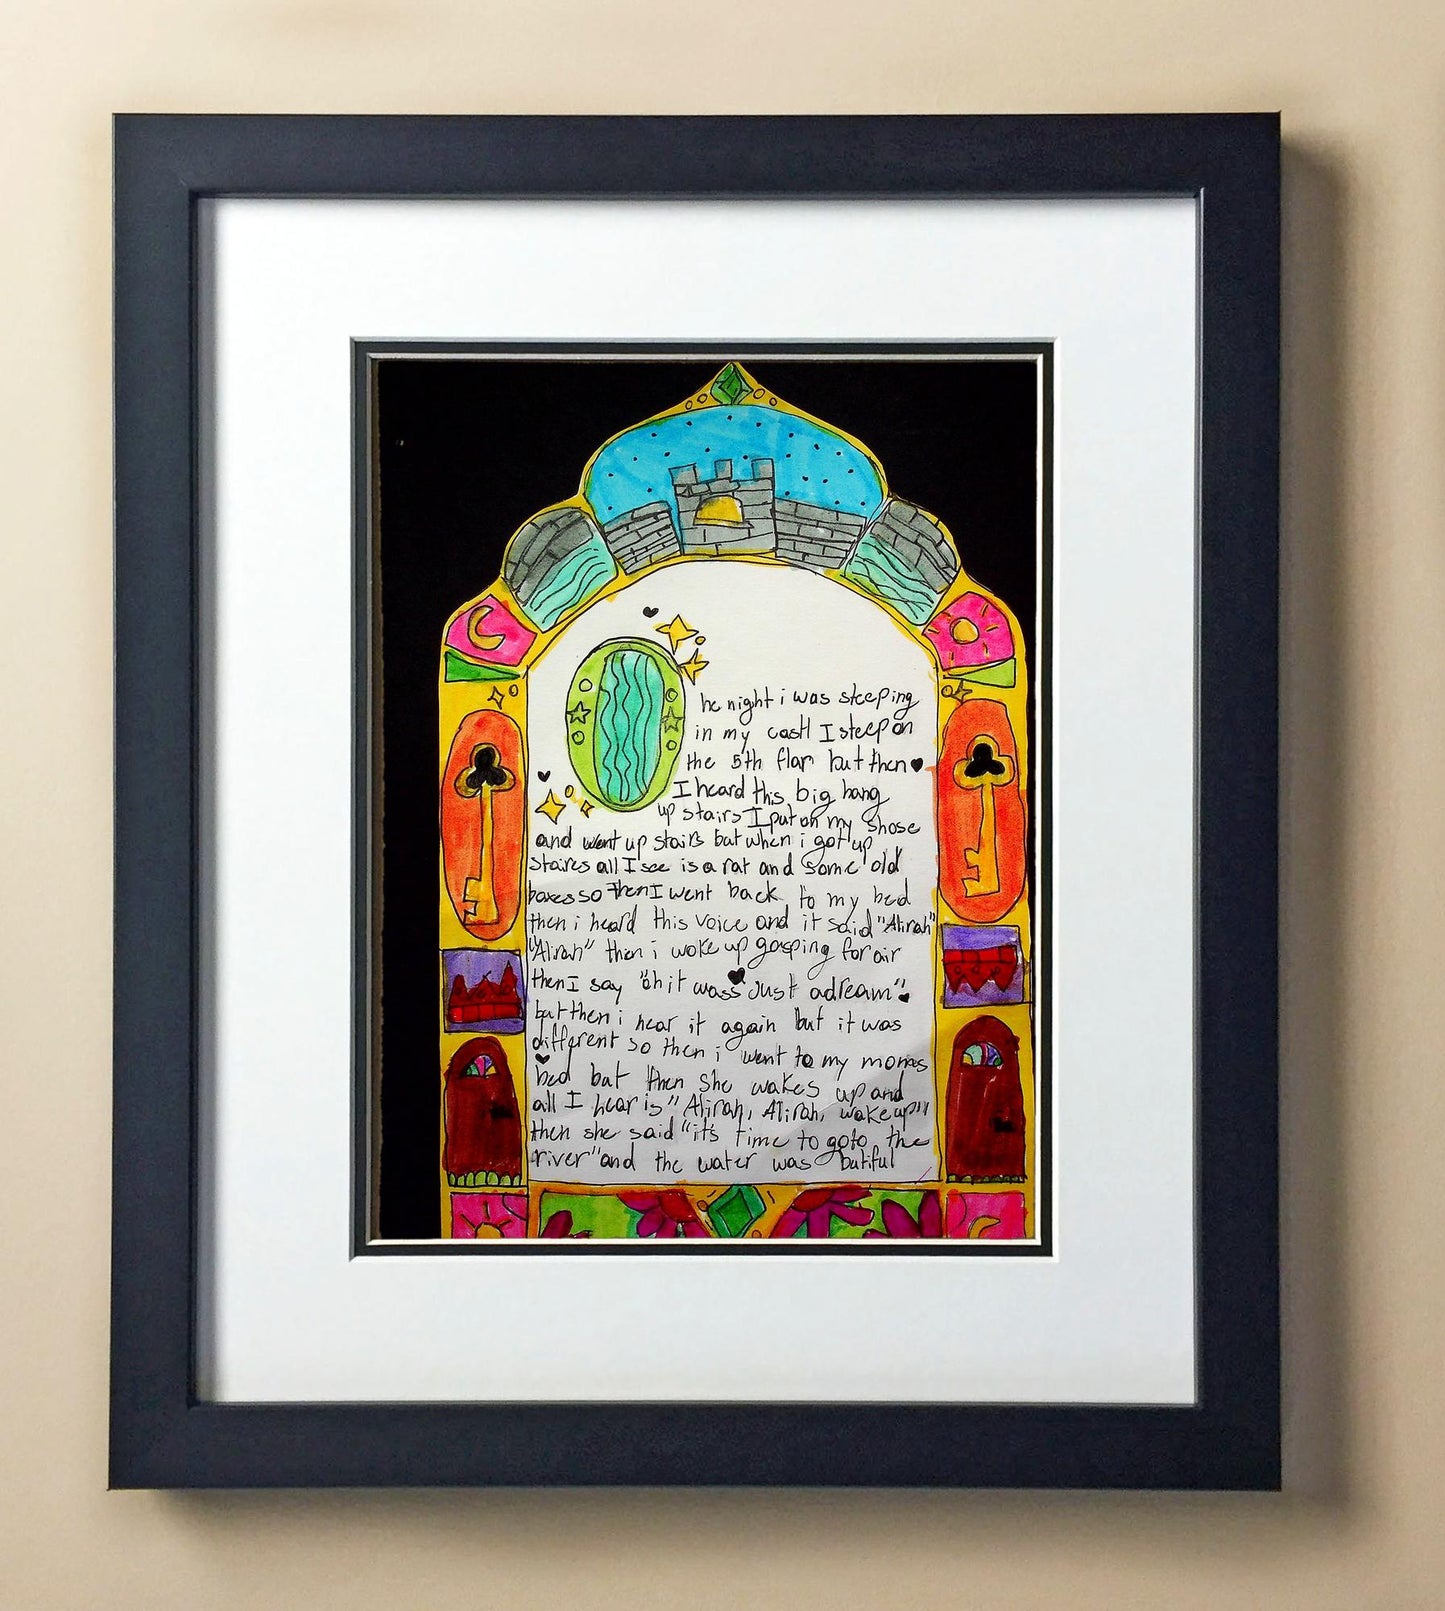 O he night i was sleeping
in my castl I sleep on
the 5th flor but then
I heard this big bang
up stairs I put on my shose
and went up stairs but when i got up
staires all I see is a rat and some old
boxes so then I went back to my bed
then i heard this voice and it said "Alirah"
"Alirah" then i woke up gasping for air
then I say "oh it wass Just a dream"
but then i hear it again but it was
different so then i went to my moms
bed but then she wakes up and
all I hear is "Alirah, Alirah, wake up"
then she said "it's time to goto the
river" and the water was butiful